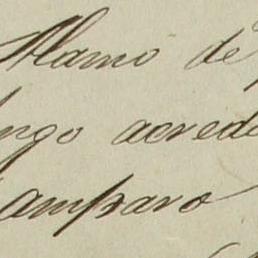 Alamo de
ngo acredi
amparo